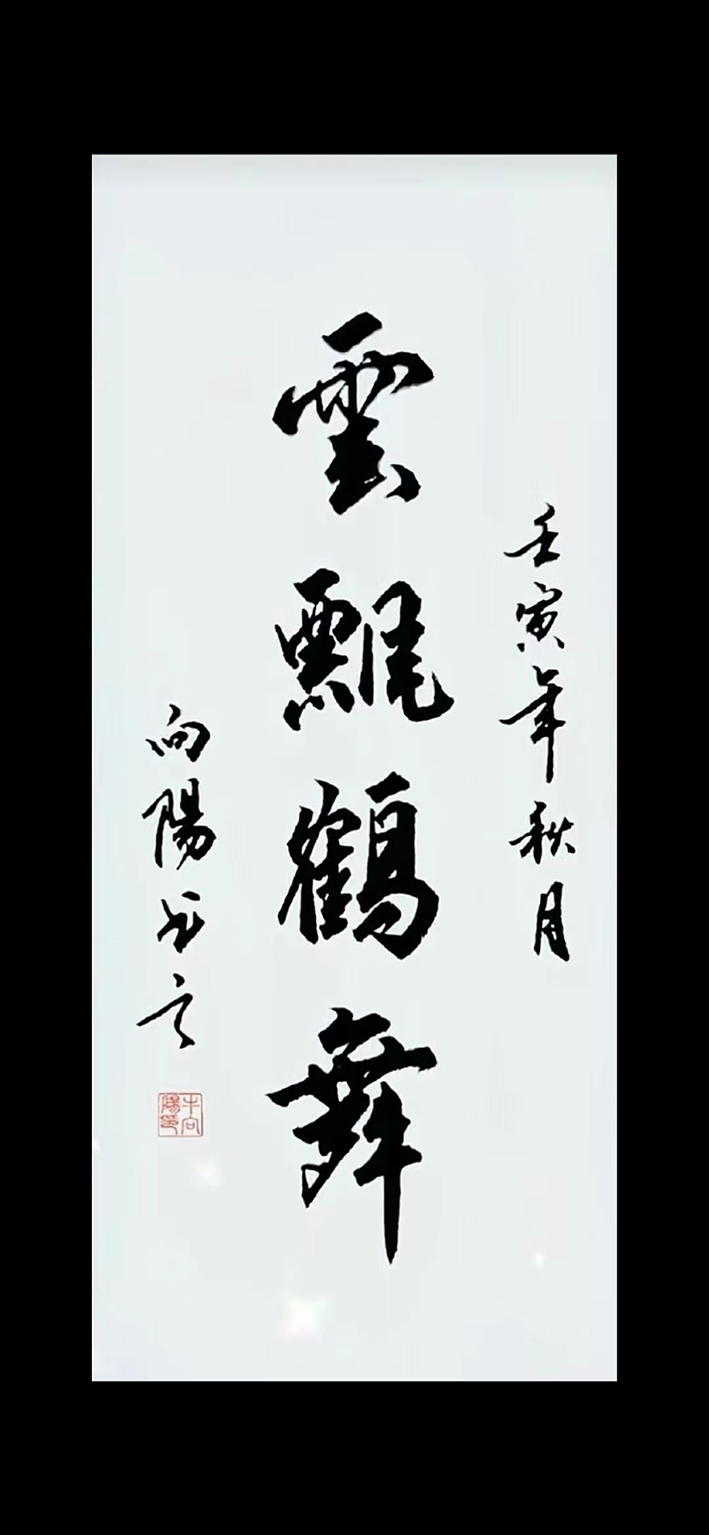 壬寅年秋月
雲飄鶴舞
向陽书之